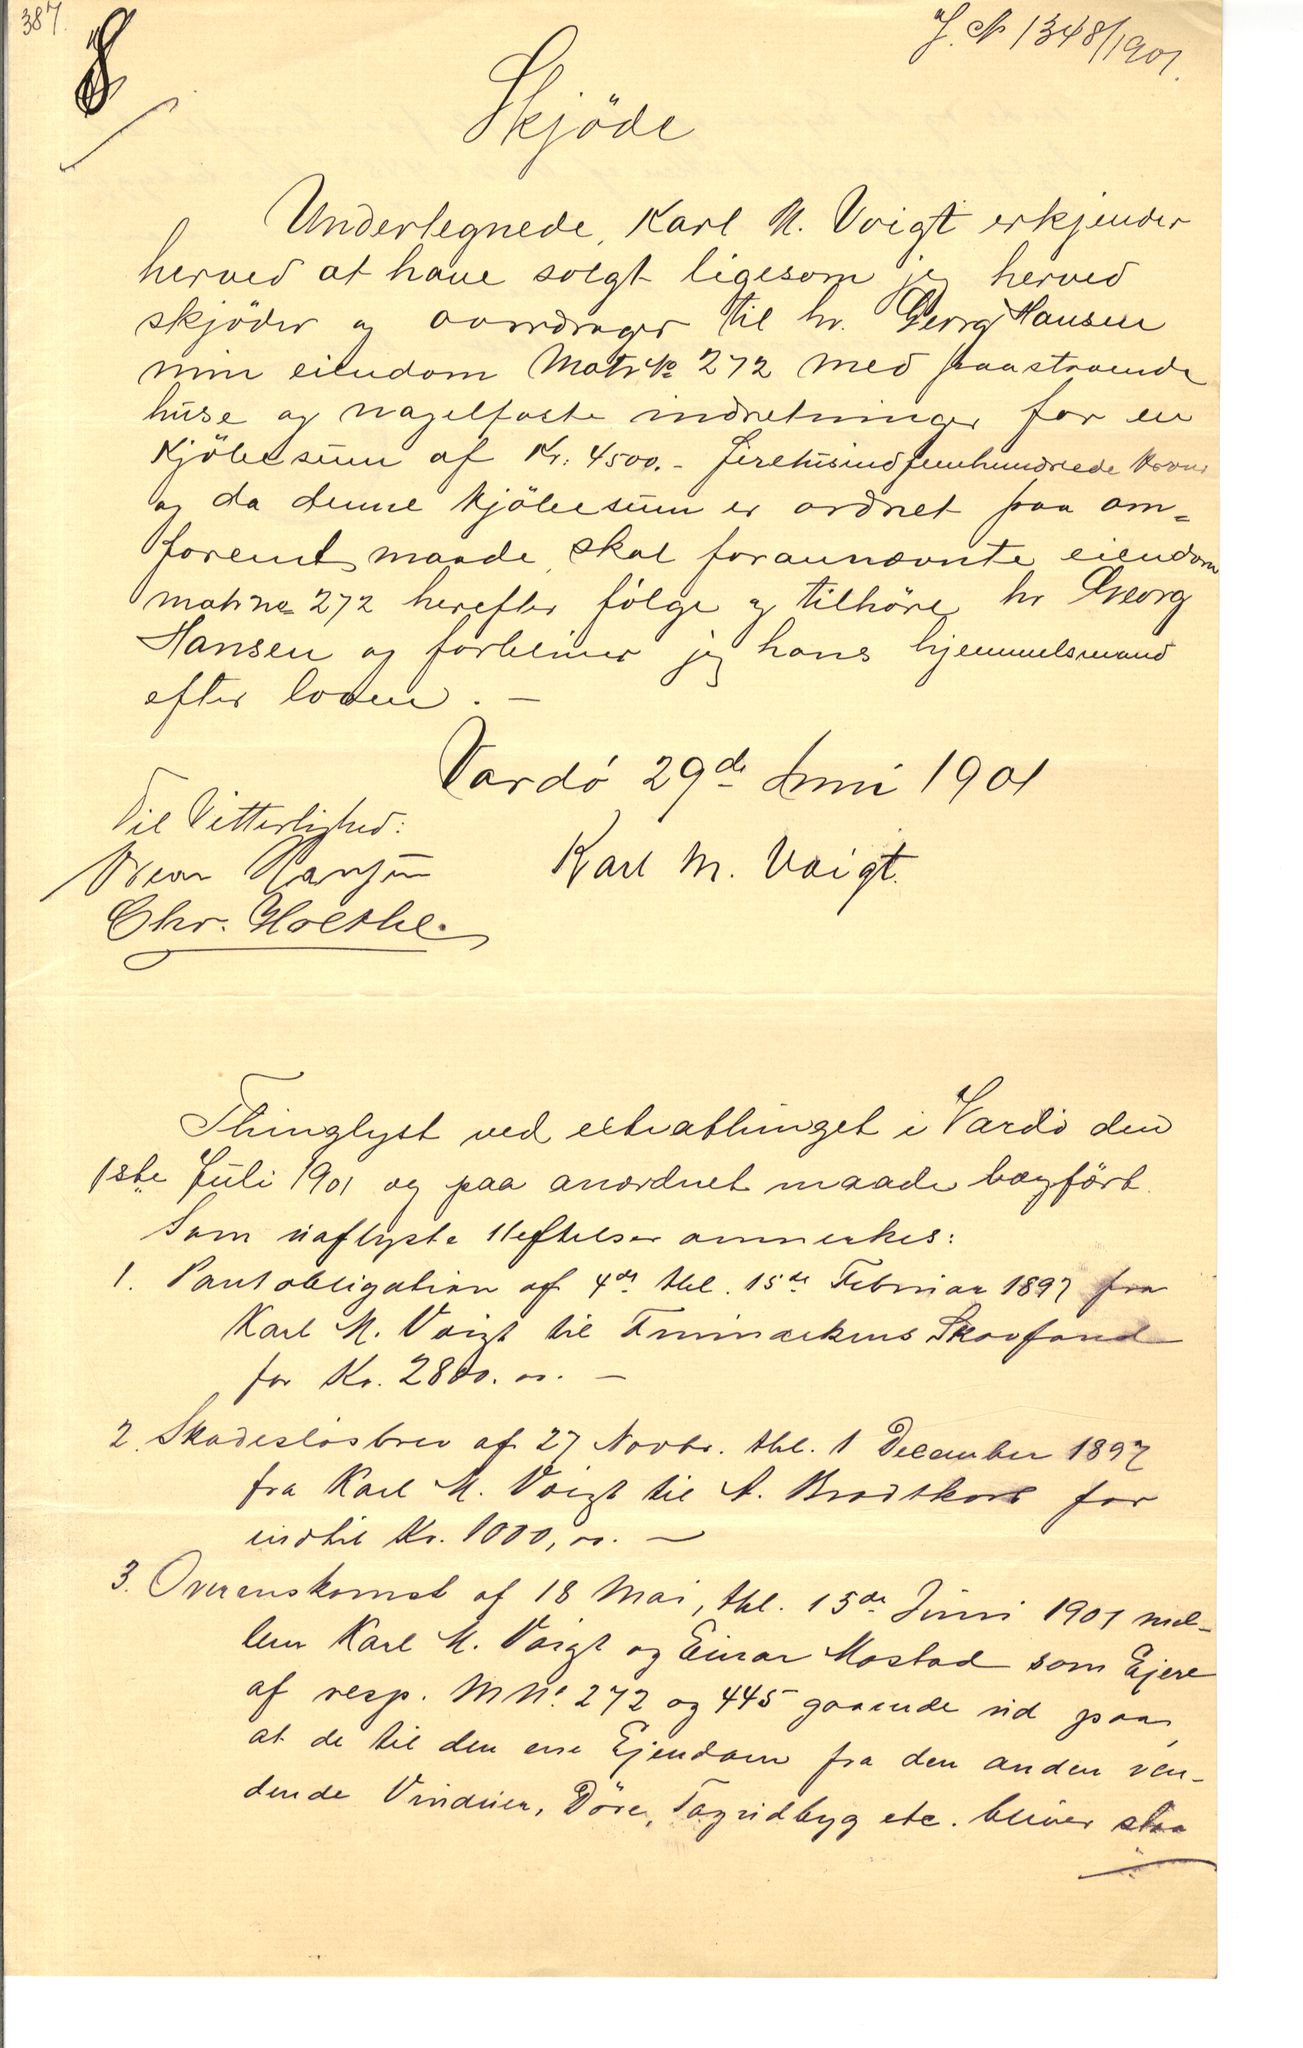 387.
J. No 1348/1901.
Skjöde
Undertegnede, Karl M. Voigt erkjender
herved at have solgt ligesom jeg herved
skjöder og overdrager til hr. Georg Hansen
min eiendom Matr No 272 med paastaaende
huse og nagelfaste indretninger for en
Kjöbesum af Kr: 4500.- firetusindfemhundrede Kroner
og da denne Kjöbesum er ordnet paa om=
forenet maade, skal forannævnte eiendom
matr no 272 herefter fölge og tilhöre hr Georg
Hansen og forbliver jeg hans hjemmelsmand
efter loven. -
Vardö 29de Juni 1901
Til Vitterlighed:
Karl M. Voigt.
Chr. Holthe.
Thinglyst ved extrathinget i Vardö den
1ste Juli 1901 og paa anordnet maade bogfört.
Som uaflyste Heftelser anmerkes:
1. Pantobligation af 4de thl. 15de Februar 1897 fra
Karl M. Voigt til Finmarkens Skovfond
for Kr. 2800.00. -
2. Skadeslösbrev af 27 Novbr. thl. 1 December 1897
fra Karl M. Voigt til A. Brodtkorb for
indtil Kr. 1000,00. -
3. Overenskomst af 18 Mai, thl. 15de Juni 1901 mel-
lem Karl M. Voigt og Einar Mostad som Ejere
af resp. M No. 272 og 445 gaaende ud paa,
at de til den ene Ejendom fra den anden ven-
dende Vinduer, Döre, Tagudbyg etc. bliver staa